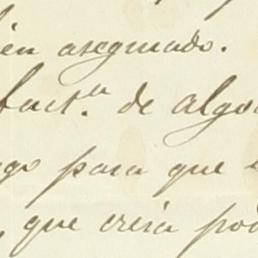 ien asegurado.
fact.a de algo
go para que e
, que creia pod